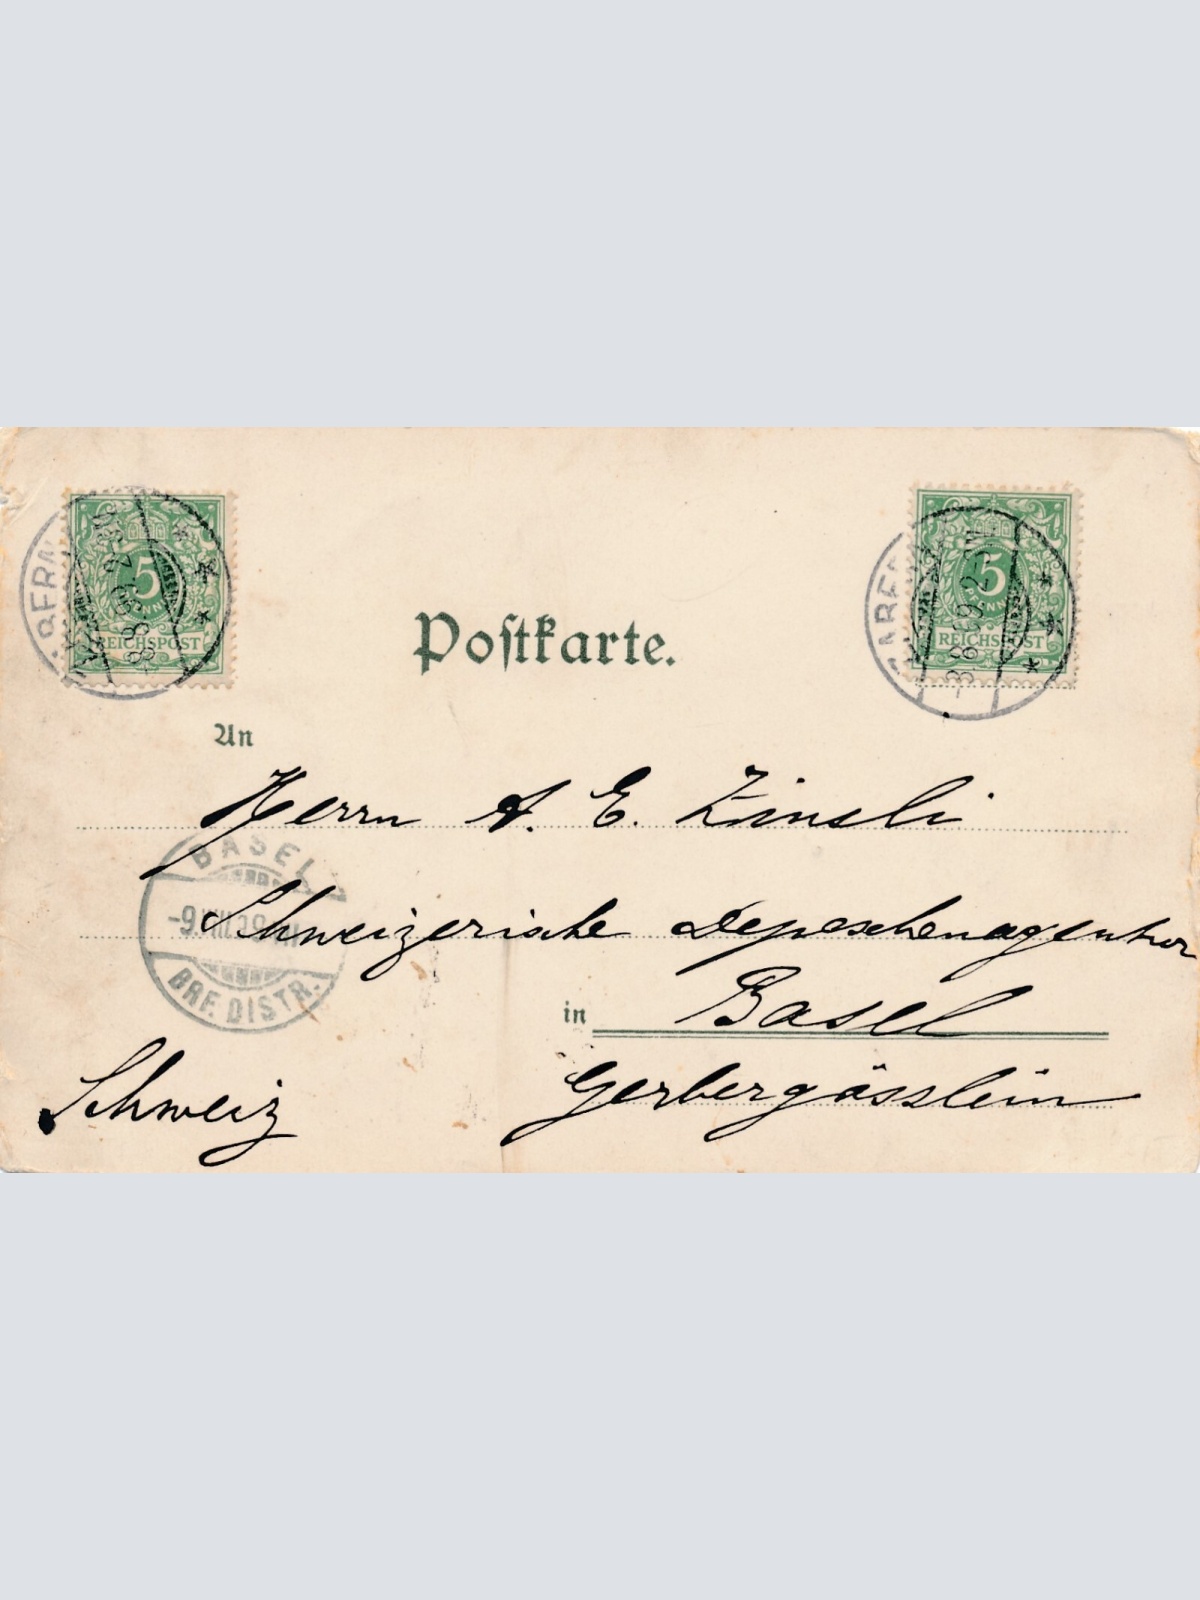 5
PFENNIG
REICHSPOST
5
PFENNIG
REICHSPOST
Postkarte.
An
Herrn A. E. Zinsli
BASEL
Schweizerische Depeschenagentur
-9.VIII.99
BRF. DISTR.
in Basel
Schweiz
Gerbergässlein